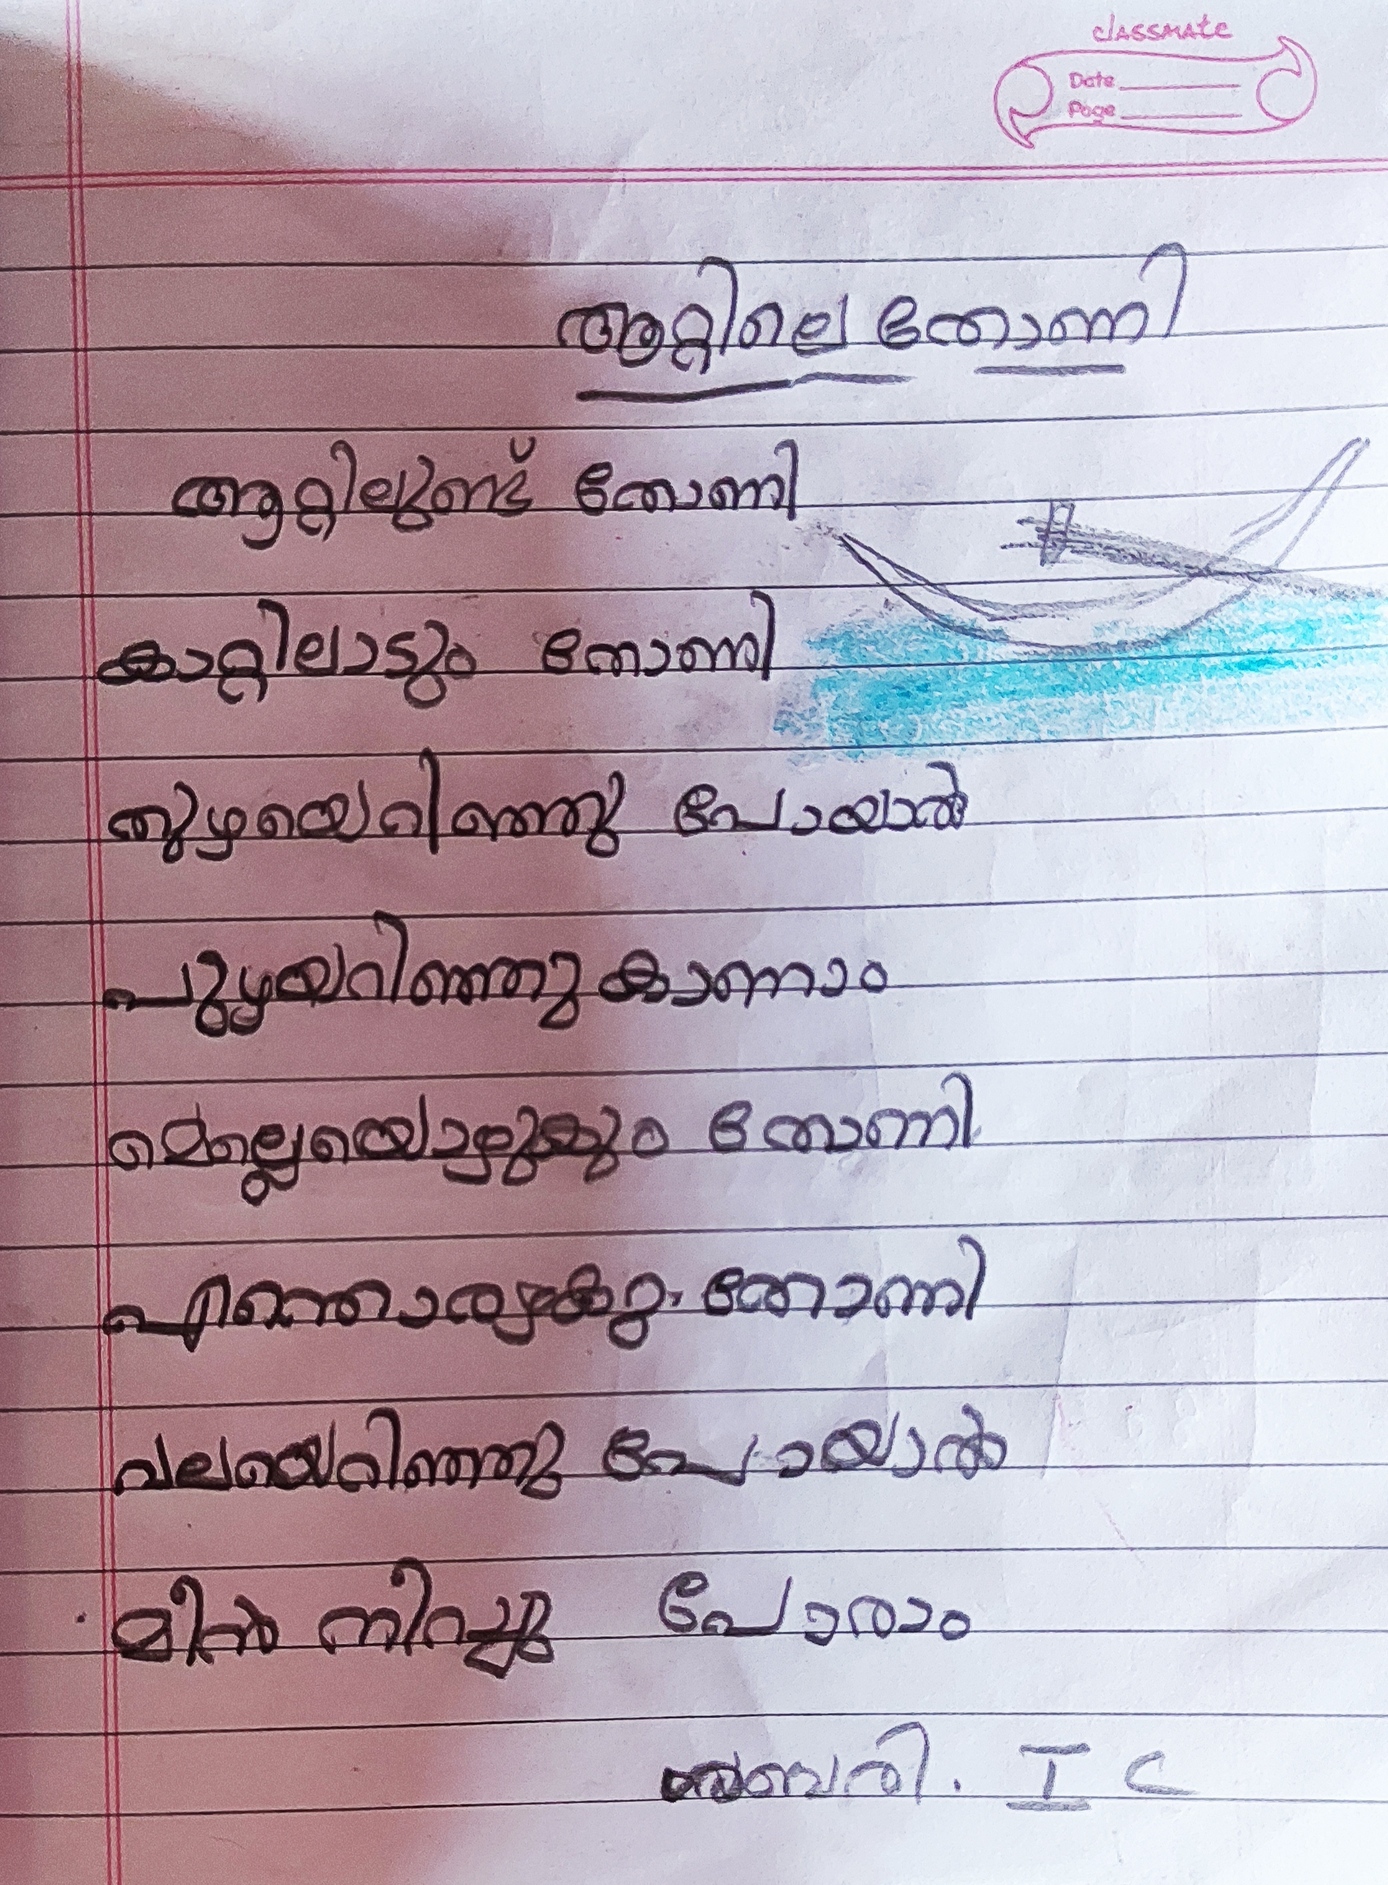 classmate
Date
Page
ആറ്റിലെ തോണി
ആറ്റിലുണ്ട് തോണി
കാറ്റിലാടും തോണി
തുഴയെറിഞ്ഞു പോയാൽ
പുഴയറിഞ്ഞു കാണാം
മെല്ലെയൊഴുകും തോണി
എന്തൊരഴകു തോണി
വലയെറിഞ്ഞു പോയാൽ
മീൻ നിറച്ചു പോരാം
I C